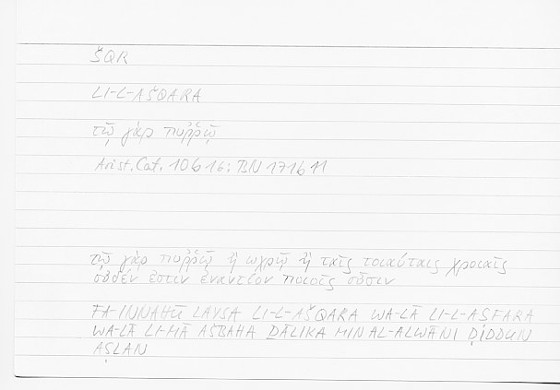 ŠQR
LI-L-AŠQARA
τῷ γὰρ πυρρῷ
Arist. Cat. 10b16; BN 171b11
τῷ γὰρ πυρρῷ ἢ ὠχρῷ ἢ ταῖς τοιαύταις χροιαῖς
οὐδέν ἐστιν ἐναντίον ποιοῖς οὖσιν
FA-INNAHŪ LAYSA LI-L-AŠQARA WA-LĀ LI-L-ASFARA
WA-LĀ LI-MĀ AŠBAHA ḎĀLIKA MIN AL-ALWĀNI ḌIDDUN
AṢLAN